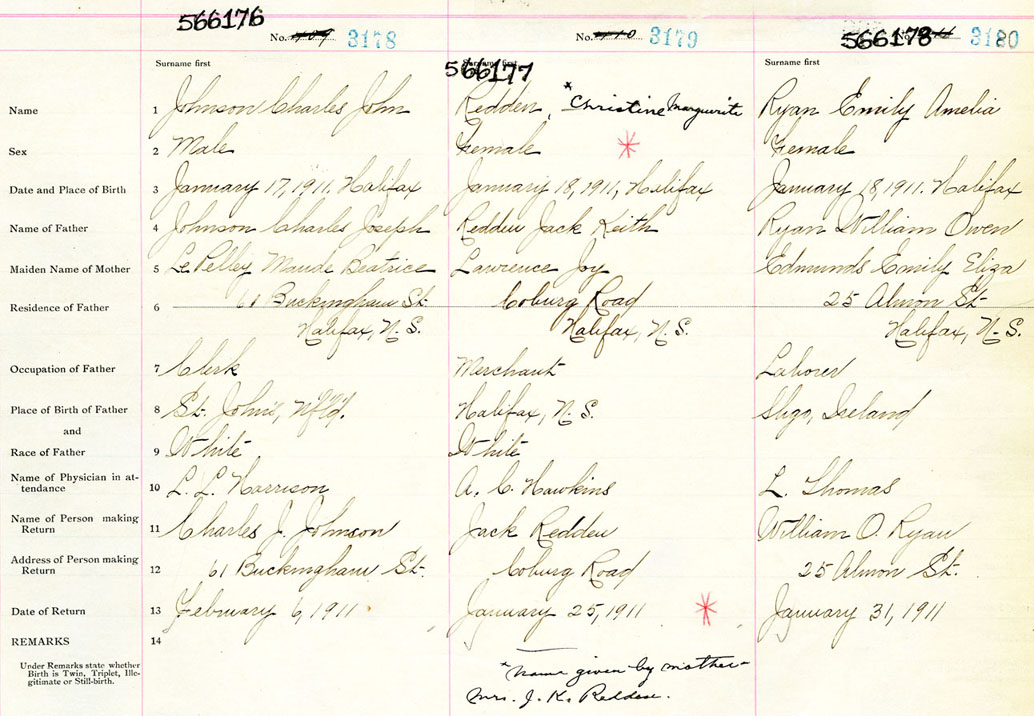 566176 566177 566178
No. 409 3178 No. 410 3179 No. 3180
Surname first Surname first Surname first
Name 1 Johnson Charles John Redden, *Christine Marguerite Ryan Emily Amelia
Sex 2 Male Female * Female
Date and Place of Birth 3 January 17, 1911. Halifax January 18, 1911, Halifax January 18, 1911. Halifax
Name of Father 4 Johnson Charles Joseph Redden Jack Keith Ryan William Owen
Maiden Name of Mother 5 LePelley Maude Beatrice Lawrence Joy Edmunds Emily Eliza
Residence of Father 6 61 Buckingham St. Coburg Road 25 Almon St.
Halifax, N.S. Halifax, N.S. Halifax, N.S.
Occupation of Father 7 Clerk Merchant Laborer
Place of Birth of Father 8 St. John's, Nfld. Halifax, N.S. Sligo, Ireland
and
Race of Father 9 White White
Name of Physician in at-
tendance 10 L. L. Harrison A. C. Hawkins L. Thomas
Name of Person making
Return 11 Charles J. Johnson Jack Redden William O. Ryan
Address of Person making
Return 12 61 Buckingham St. Coburg Road 25 Almon St.
Date of Return 13 February 6, 1911 January 25, 1911 * January 31, 1911
REMARKS 14
Under Remarks state whether
Birth is Twin, Triplet, Ille-
gitimate or Still-birth.
*Name given by mother-
Mrs. J. K. Redden.